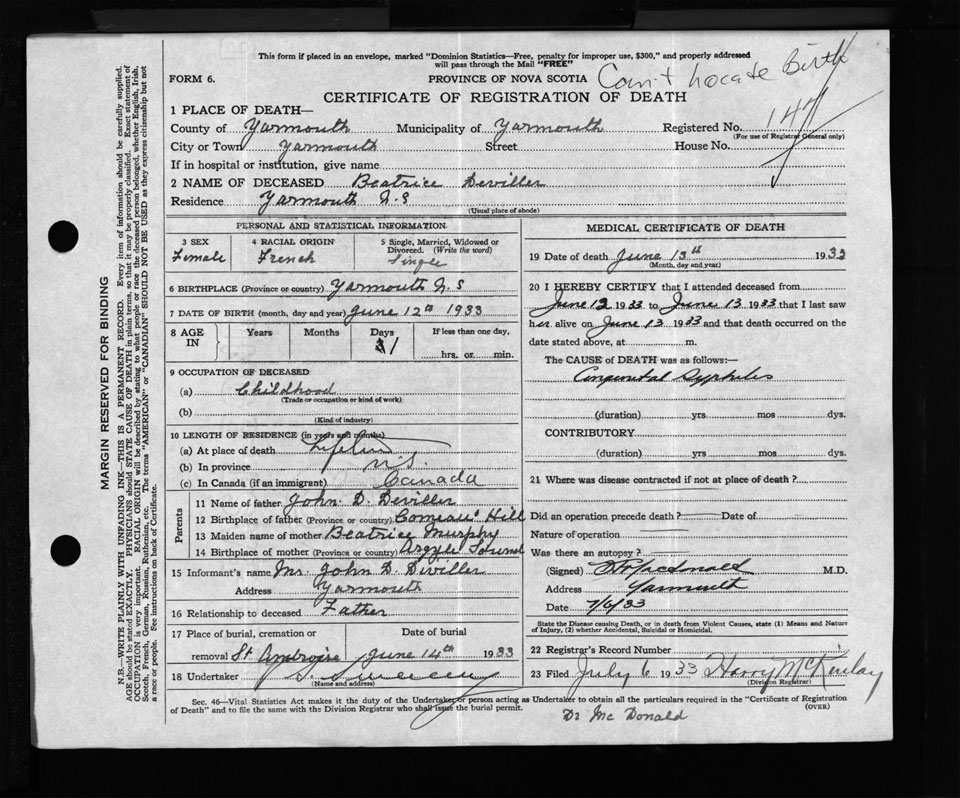 This form if placed in an envelope, marked "Dominion Statistics—Free, penalty for improper use, $300," and properly addressed
will pass through the Mail "FREE"
FORM 6.
PROVINCE OF NOVA SCOTIA
Can't Locate Birth
CERTIFICATE OF REGISTRATION OF DEATH
1 PLACE OF DEATH—
County of Yarmouth Municipality of Yarmouth Registered No. 147
(For use of Registrar General only)
City or Town Yarmouth Street House No.
If in hospital or institution, give name
2 NAME OF DECEASED Beatrice Deviller
Residence Yarmouth N.S
(Usual place of abode)
PERSONAL AND STATISTICAL INFORMATION
3 SEX 4 RACIAL ORIGIN 5 Single, Married, Widowed or
Divorced. (Write the word)
Female French Single
6 BIRTHPLACE (Province or country) Yarmouth N.S
7 DATE OF BIRTH (month, day and year) June 12th 1933
8 AGE IN Years Months Days If less than one day,
1 hrs. or min.
9 OCCUPATION OF DECEASED
(a) Childhood
(Trade or occupation or kind of work)
(b)
(Kind of industry)
10 LENGTH OF RESIDENCE (in years and months)
(a) At place of death
(b) In province N.S.
(c) In Canada (if an immigrant) Canada
Parents
11 Name of father John D. Deviller
12 Birthplace of father (Province or country) Comeau's Hill
13 Maiden name of mother Beatrice Murphy
14 Birthplace of mother (Province or country) Argyle Sound
15 Informant's name Mr. John D. Deviller
Address Yarmouth
16 Relationship to deceased Father
17 Place of burial, cremation or Date of burial
removal St Ambroise June 14th 1933
18 Undertaker
(Name and address)
MEDICAL CERTIFICATE OF DEATH
19 Date of death June 13th 1933
(Month, day and year)
20 I HEREBY CERTIFY that I attended deceased from
June 12 1933 to June 13 1933 that I last saw
her alive on June 13 1933 and that death occurred on the
date stated above, at m.
The CAUSE of DEATH was as follows:—
Congenital Syphilis
(duration) yrs mos dys.
CONTRIBUTORY
(duration) yrs mos dys.
21 Where was disease contracted if not at place of death?
Did an operation precede death? Date of
Nature of operation
Was there an autopsy?
(Signed) Macdonald M.D.
Address Yarmouth
Date 7/6/33
State the Disease causing Death, or in death from Violent Causes, state (1) Means and Nature
of Injury, (2) whether Accidental, Suicidal or Homicidal.
22 Registrar's Record Number
23 Filed July 6 1933 Harry McKinlay
(Division Registrar)
Sec. 46—Vital Statistics Act makes it the duty of the Undertaker or person acting as Undertaker to obtain all the particulars required in the "Certificate of Registration
of Death" and to file the same with the Division Registrar who shall issue the burial permit. (OVER)
Dr Mc Donald
MARGIN RESERVED FOR BINDING
N.B.—WRITE PLAINLY WITH UNFADING INK—THIS IS A PERMANENT RECORD. Every item of information should be carefully supplied.
AGE should be stated EXACTLY. PHYSICIANS should STATE CAUSE OF DEATH in plain terms, so that it may be properly classified. Exact statement of
OCCUPATION is very important. RACIAL ORIGIN will be described by stating to what people or race the deceased person belonged, whether English, Irish,
Scotch, French, German, Russian, Ruthenian, etc. The terms "AMERICAN" or "CANADIAN" SHOULD NOT BE USED as they express citizenship but not
a race or people. See instructions on back of Certificate.